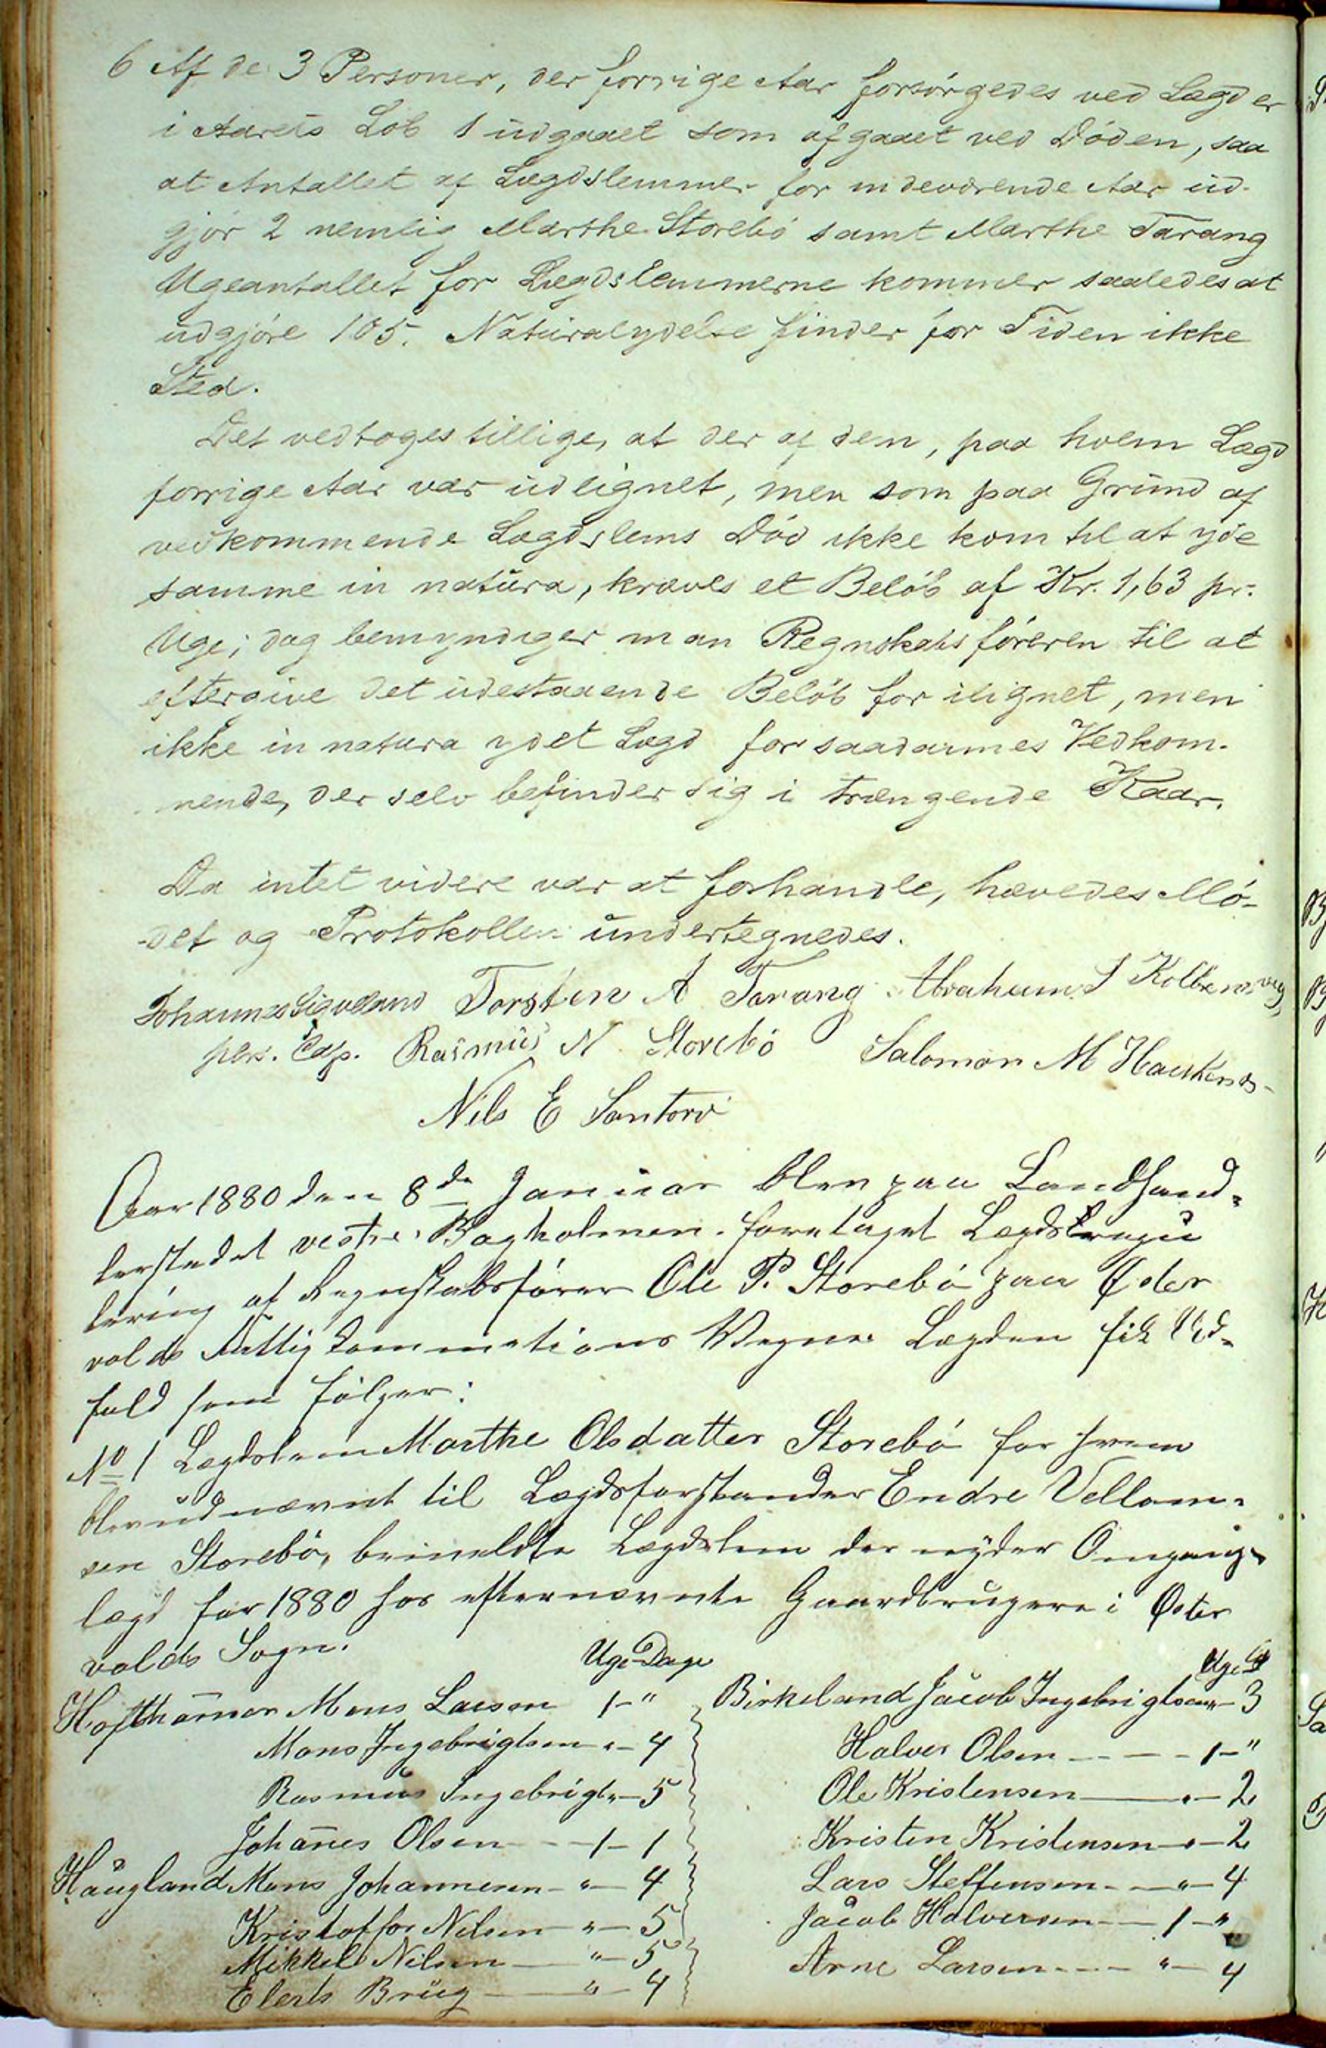 6 Af de 3 Personer, der forrige Aar forsørgedes ved Lægd er
i Aarets Løb 1 udgaaet som afgaaet ved Døden, saa
at Antallet af Lægdslemmer for indeværende Aar ud-
gjør 2 nemlig Marthe Storebø samt Marthe Tarang
Ugeantallet for Lægdslemmerne kommer saaledes at
udgjøre 105. Naturalydelse finder for Tiden ikke
Sted.
Det vedtoges tillige, at der af den, paa hvem Lægd
forrige Aar var udlignet, men som paa Grund af
vedkommende Lægdslems Død ikke kom til at yde
samme in natura, kræves et Beløb af Kr. 1,63 pr.
Uge; dog bemyndiger man Regnskabsføreren til at
eftergive det udestaaende Beløb for ilignet, men
ikke in natura ydet Lægd for saadannes Vedkom-
mende, der selv befinder sig i trængende Kaar.
Da intet videre var at forhandle, hævedes Mø-
det og Protokollen undertegnedes.
Johannes Sigvaland Torsten A Tarang Abraham J
pers. Cap. Rasmus N Storebø Salomon M
Nils E Santorv
Aar 1880 den 8de Januar blev paa Landhand-
lerstedet vestre Bagholmen foretaget Lægdsregu
lering af Regnskabsfører Ole P. Storebø paa Øster
volds Fattigkommissions Vegne. Lægden fik Ud-
fald som følger:
No 1 Lægdslem Marthe Olsdatter Storebø for hvem
blev udnævnt til Lægdsforstander Endre Vellom-
sen Storebø, bemeldte Lægdslem der nyder Omgangs-
lægd for 1880 hos efternævnte Gaardbrugere i Øster
volds Sogn.
Uge Dage
Hofthamar Mons Larsen 1 - "
Mons Ingebrigtsen " - 4
Rasmus Ingebrigt " - 5
Johanes Olsen - 1 - 1
Haugland Mons Johannesen - " - 4
Kristoffer Nilsen - " - 5
Mikkel Nilsen - " - 5
Elerts Brug - " - 4
Uge D
Birkeland Jacob Ingebrigtsen " - 3
Halver Olsen - 1 - "
Ole Kristensen - " - 2
Kristen Kristensen - " - 2
Lars Steffensen - " - 4
Jacob Halversen - 1 - "
Arne Larsen - " - 4